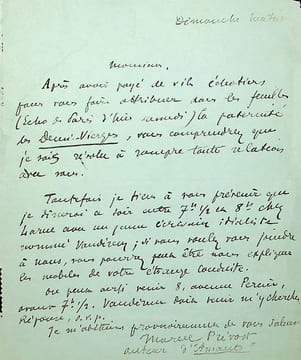 Dimanche matin
Monsieur,
Après avoir payé de vils échotiers
pour vous faire attribuer dans les feuilles
(Echo de Paris d'hier samedi) la paternité
des Demi-Vierges, vous comprendrez que
je sois résolu à rompre toute relation
avec vous.
Toutefois je tiens à vous prévenir que
je dînerai ce soir entre 7h 1/2 et 8h chez
avec un jeune écrivain idéaliste
nommé Vandérem ; si vous voulez vous joindre
à nous, vous pourrez peut être nous expliquer
les mobiles de votre étrange conduite.
On peut aussi venir 8, avenue Percier,
avant 7h 1/2. Vandérem doit venir m'y chercher
Réponse, s.v.p.
Je m'abstiens provisoirement de vous saluer
Marcel Prévost
auteur d'